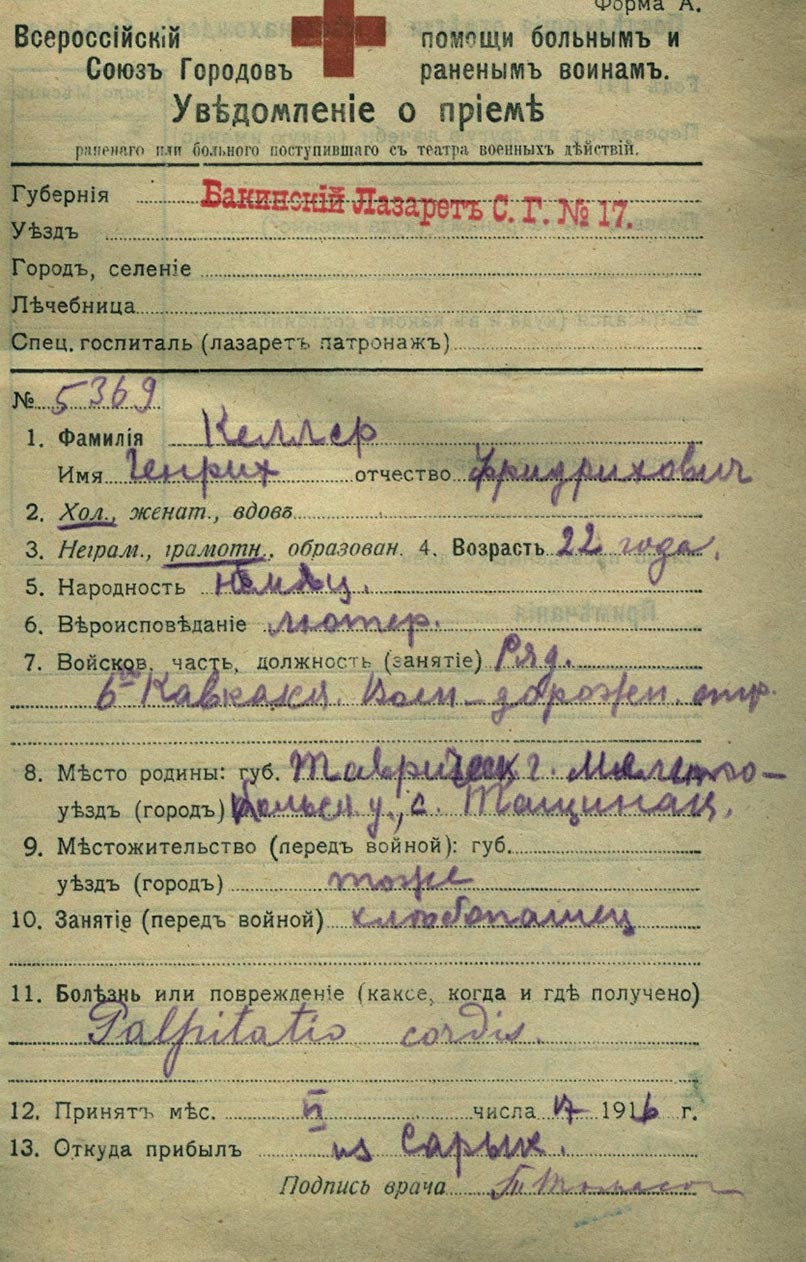 Форма А.
Всероссійскій помощи больнымъ и
Союзъ Городовъ раненымъ воинамъ.
Увѣдомленіе о пріемѣ
раненаго или больного поступившаго съ театра военныхъ дѣйствій.
Губернія Бакинскій Лазаретъ С. Г. № 17.
Уѣздъ
Городъ, селеніе
Лѣчебница
Спец. госпиталь (лазаретъ патронажъ)
№ 5369
1. Фамилія Келлер
Имя Генрих отчество Фридрихович
2. Хол., женат., вдовъ
3. Неграм., грамотн., образован. 4. Возрасть 22 года.
5. Народность нѣмец.
6. Вѣроисповѣданіе лютер.
7. Войсков. часть, должность (занятіе) Ряд.
6 Кавказск. дорожн.
8. Мѣсто родины: губ. Тавричек г. Мелито-
уѣздъ (городъ) польск у., с. Тащинак.
9. Мѣстожительство (передъ войной): губ.
уѣздъ (городъ) тоже
10. Занятіе (передъ войной) хлѣбопашец
11. Болѣзнь или поврежденіе (какое, когда и гдѣ получено)
Palpitatio cordis.
12. Принятъ мѣс. VI числа 17 1916 г.
13. Откуда прибылъ из Сарык.
Подпись врача